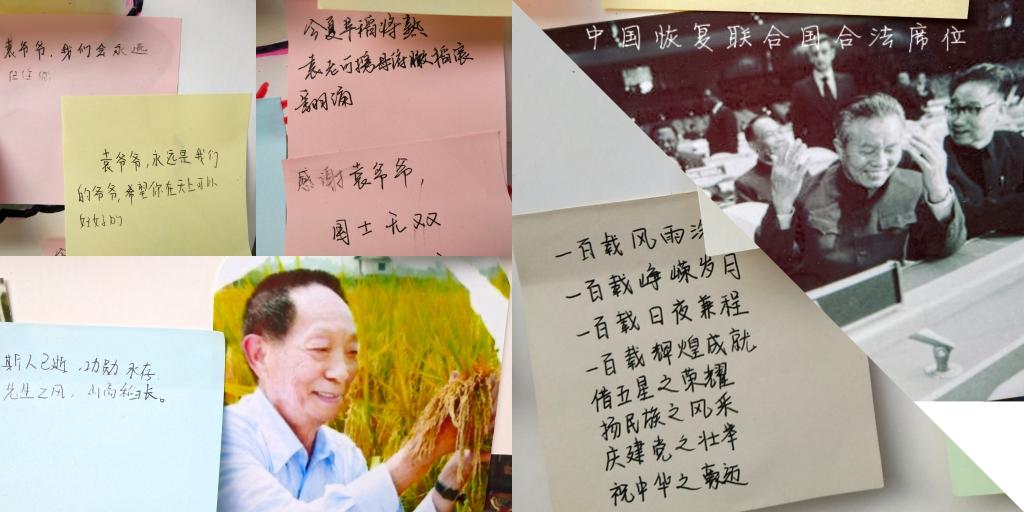 袁爷爷，我们会永远
记住你
袁爷爷，永远是我们
的爷爷，希望你在天上可以
好好的
今夏早稻将熟
袁老可携母游撒稻浪
翻涌
感谢袁爷爷，
国士无双
斯人已逝，功勋永存
先生之风，山高稻长。
中国恢复联合国合法席位
一百载风雨
一百载峥嵘岁月
一百载日夜兼程
一百载辉煌成就
借五星之荣耀
扬民族之风采
庆建党之壮举
祝中华之豪迈